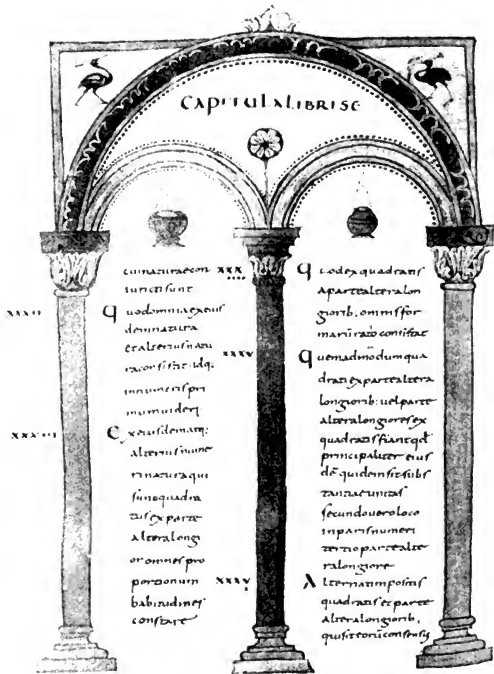 CAPITULA LIBRI SE
cui naturae con
iuncti sunt
XXXII Quod omnia ex eius
dem natura
et alterius natu
ra consistit · idq;
in numeris pri
mum uideri
XXXIII Ex eiusdem atq;
alterius nume
ri natura qui
sunt quadra
tus ex parte
altera longi
or omnes pro
portionum
babitudines
constare
XXX
Quod ex quadratis
a parte altera lon
giorib; omnis for
marū ratio consistat
XXXV Quemadmodum qua
drati ex parte altera
longiorib; uel parte
altera longiores ex
quadratis fiant qđ
principaliter eius
dē quidem sit subs
tantiae unitas
secundo uero loco
inparis numeri
tertio parte alte
ra longiore
XXXV Alternatim positis
quadratis et parte
altera longiorib;
qui sit eorū consensus